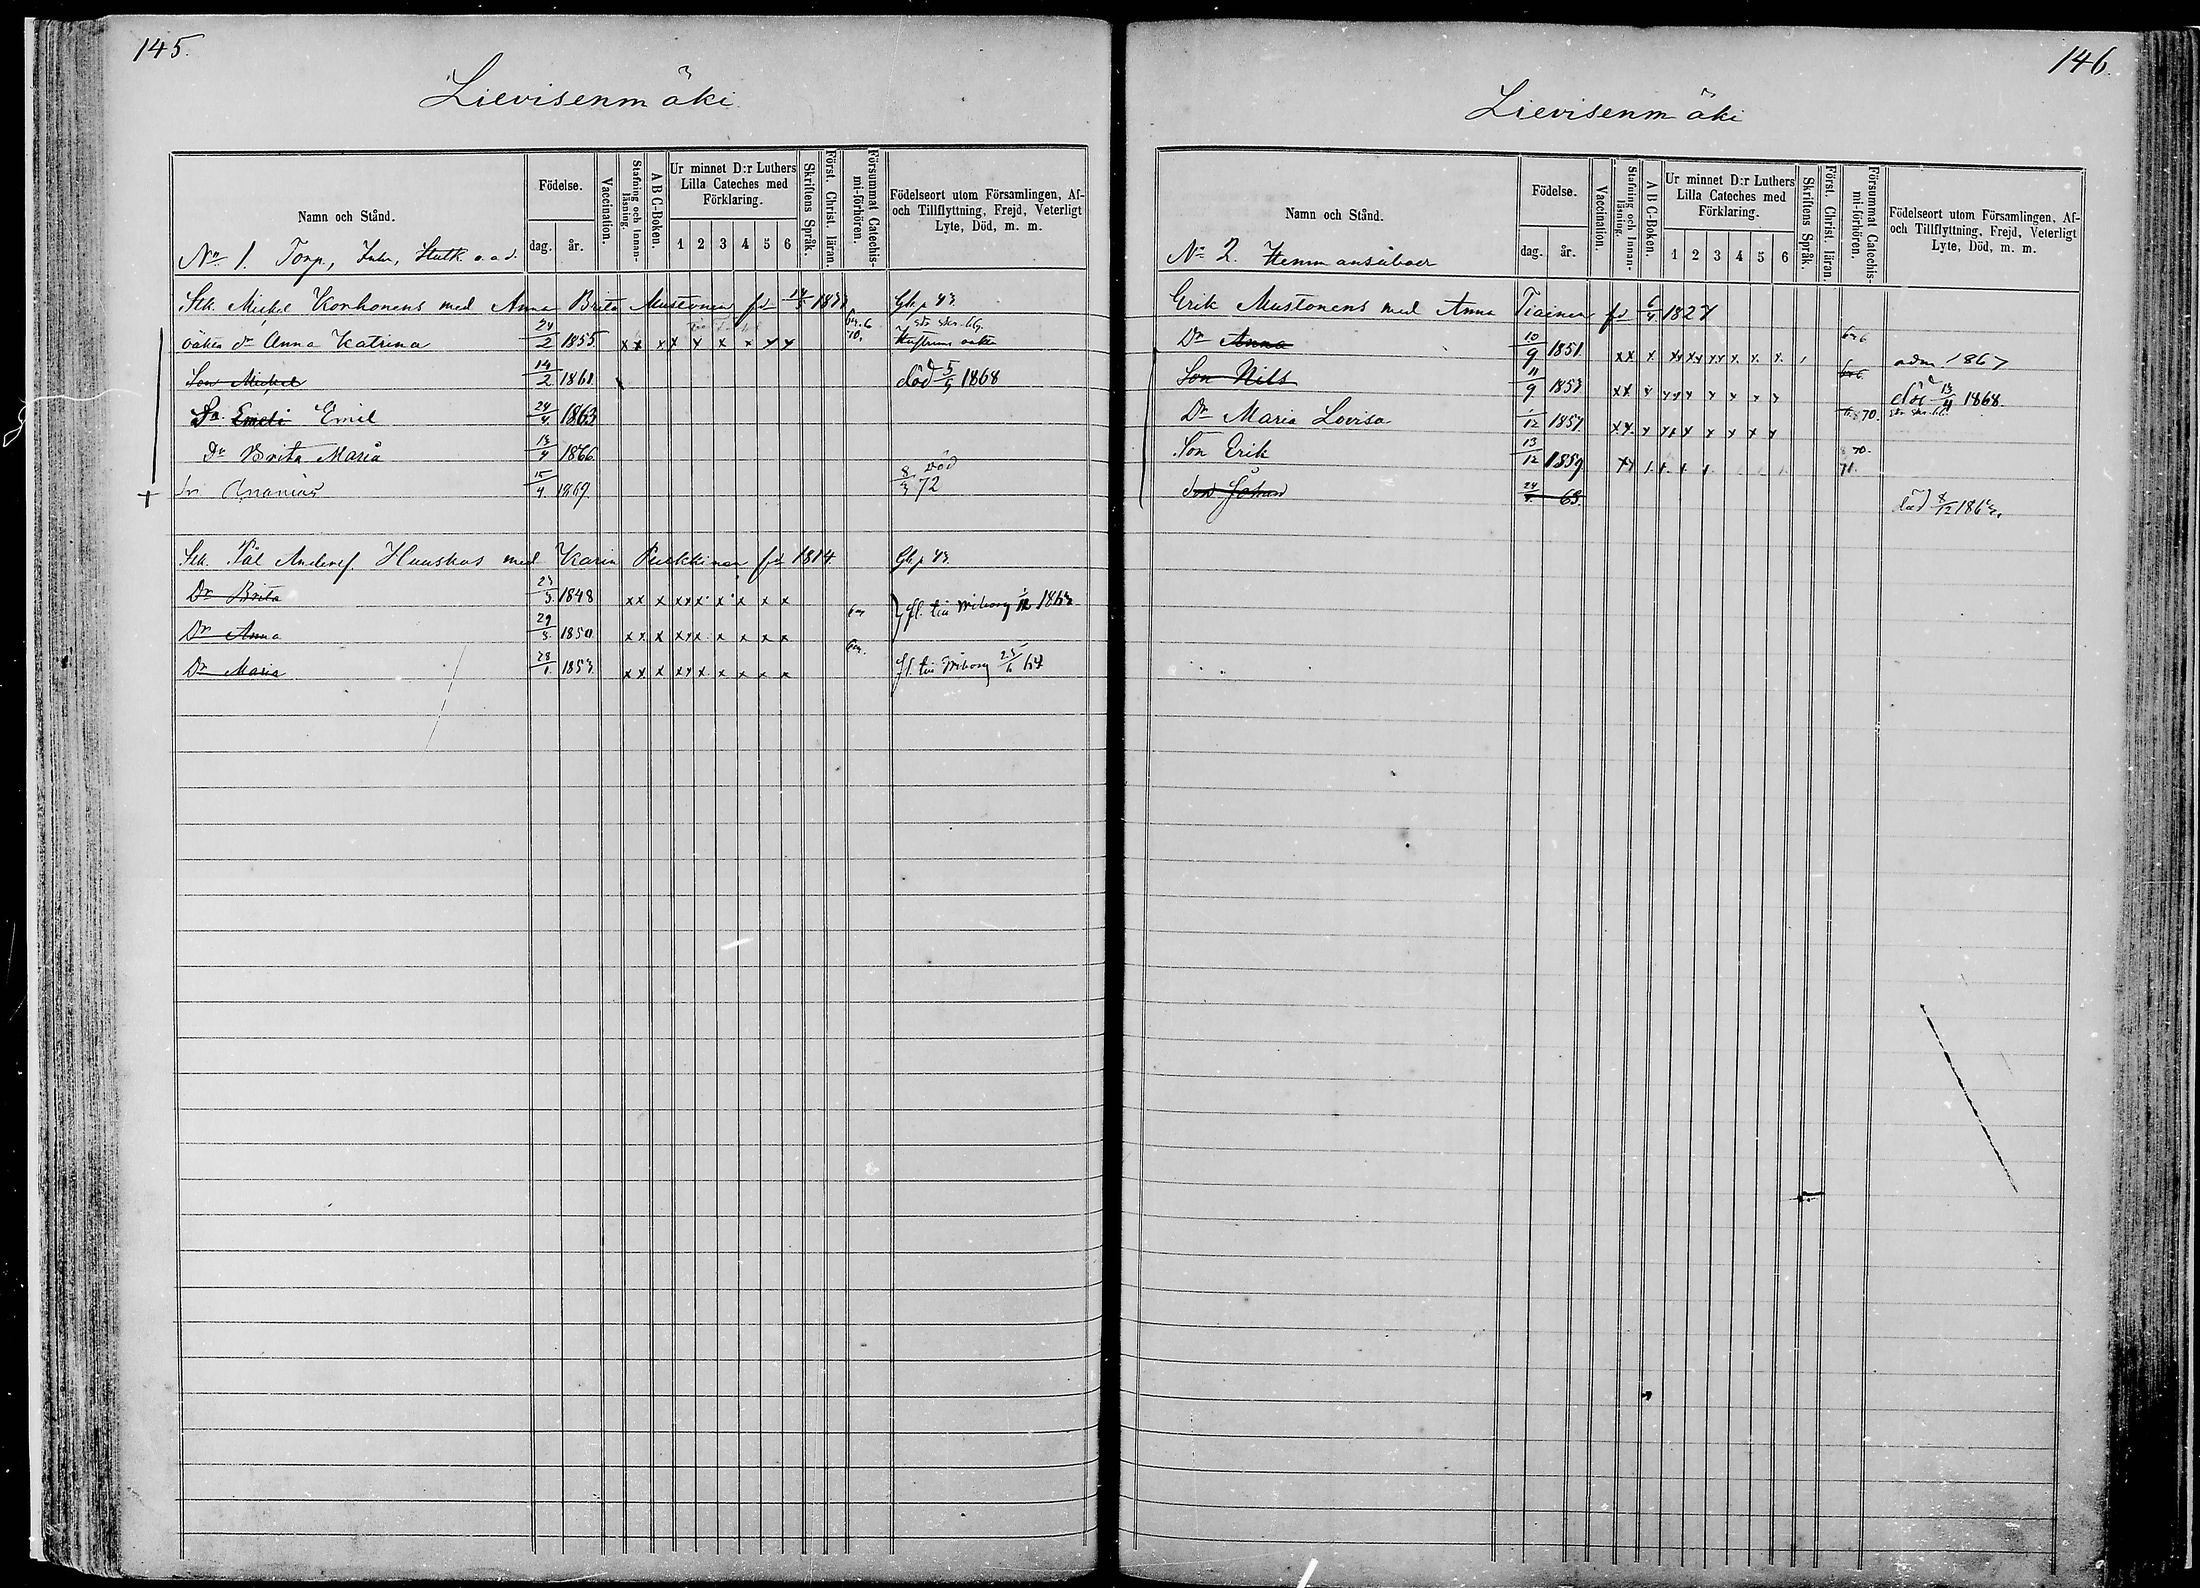 145.
Lievisenmäki
Namn och Stånd.
Födelse.
dag. år.
Vaccination.
Stafning och Innanläsning.
A B C-Boken.
Ur minnet D:r Luthers Lilla Cateches med Förklaring.
1 2 3 4 5 6
Skriftens Språk.
Först. Christ. läran.
Försummat Catechismi-förhören.
Födelseort utom Församlingen, Af- och Tillflyttning, Frejd, Veterligt Lyte, Död, m. m.
No 1. Torp., Inh., Statk. o.a.d.
Stk. Mickel Korhonens med Anna Brita Mustonen fd 1831 Gb. p 43
dr Anna Katrina 24/2 1855 x x x x x x x x x 70.
Son Mickel 14/2 1861 död 5/5 1868
Sn. Emeli Emil 24/4 1863
Dr Brita Maria 13/4 1866
Sn Ananias 15/4 1869 död 8/3 72
Stk. Pål Andersf. Huuskos med Karin Pulkkinen fd 1814. Gb. p 43
Dr Brita 23/3 1848 x x x x x x x x x x
fl. till Wiborg 1863
Dr Anna 29/3 1850 x x x x x x x x x x
Dr Maria 28/1 1853 x x x x x x x x x x fl. till Wiborg 25/6 64
146.
Lievisenmäki
Namn och Stånd.
Födelse.
dag. år.
Vaccination.
Stafning och Innanläsning.
A B C-Boken.
Ur minnet D:r Luthers Lilla Cateches med Förklaring.
1 2 3 4 5 6
Skriftens Språk.
Först. Christ. läran.
Försummat Catechismi-förhören.
Födelseort utom Församlingen, Af- och Tillflyttning, Frejd, Veterligt Lyte, Död, m. m.
No 2. Hemmansåboer
Erik Mustonens med Anna Tiainen fd 6/4 1827
Dr Anna 10/9 1851 x x x x x x x x x x adm. 1867
Son Nils 11/9 1853 x x x x x x x x x död 13/4 1868.
Dr Maria Lovisa 1/12 1857 x x x x x x x x x 70.
Son Erik 13/12 1859 x x 70. 71.
Son Johan 24/4 63. död 8/12 1863.